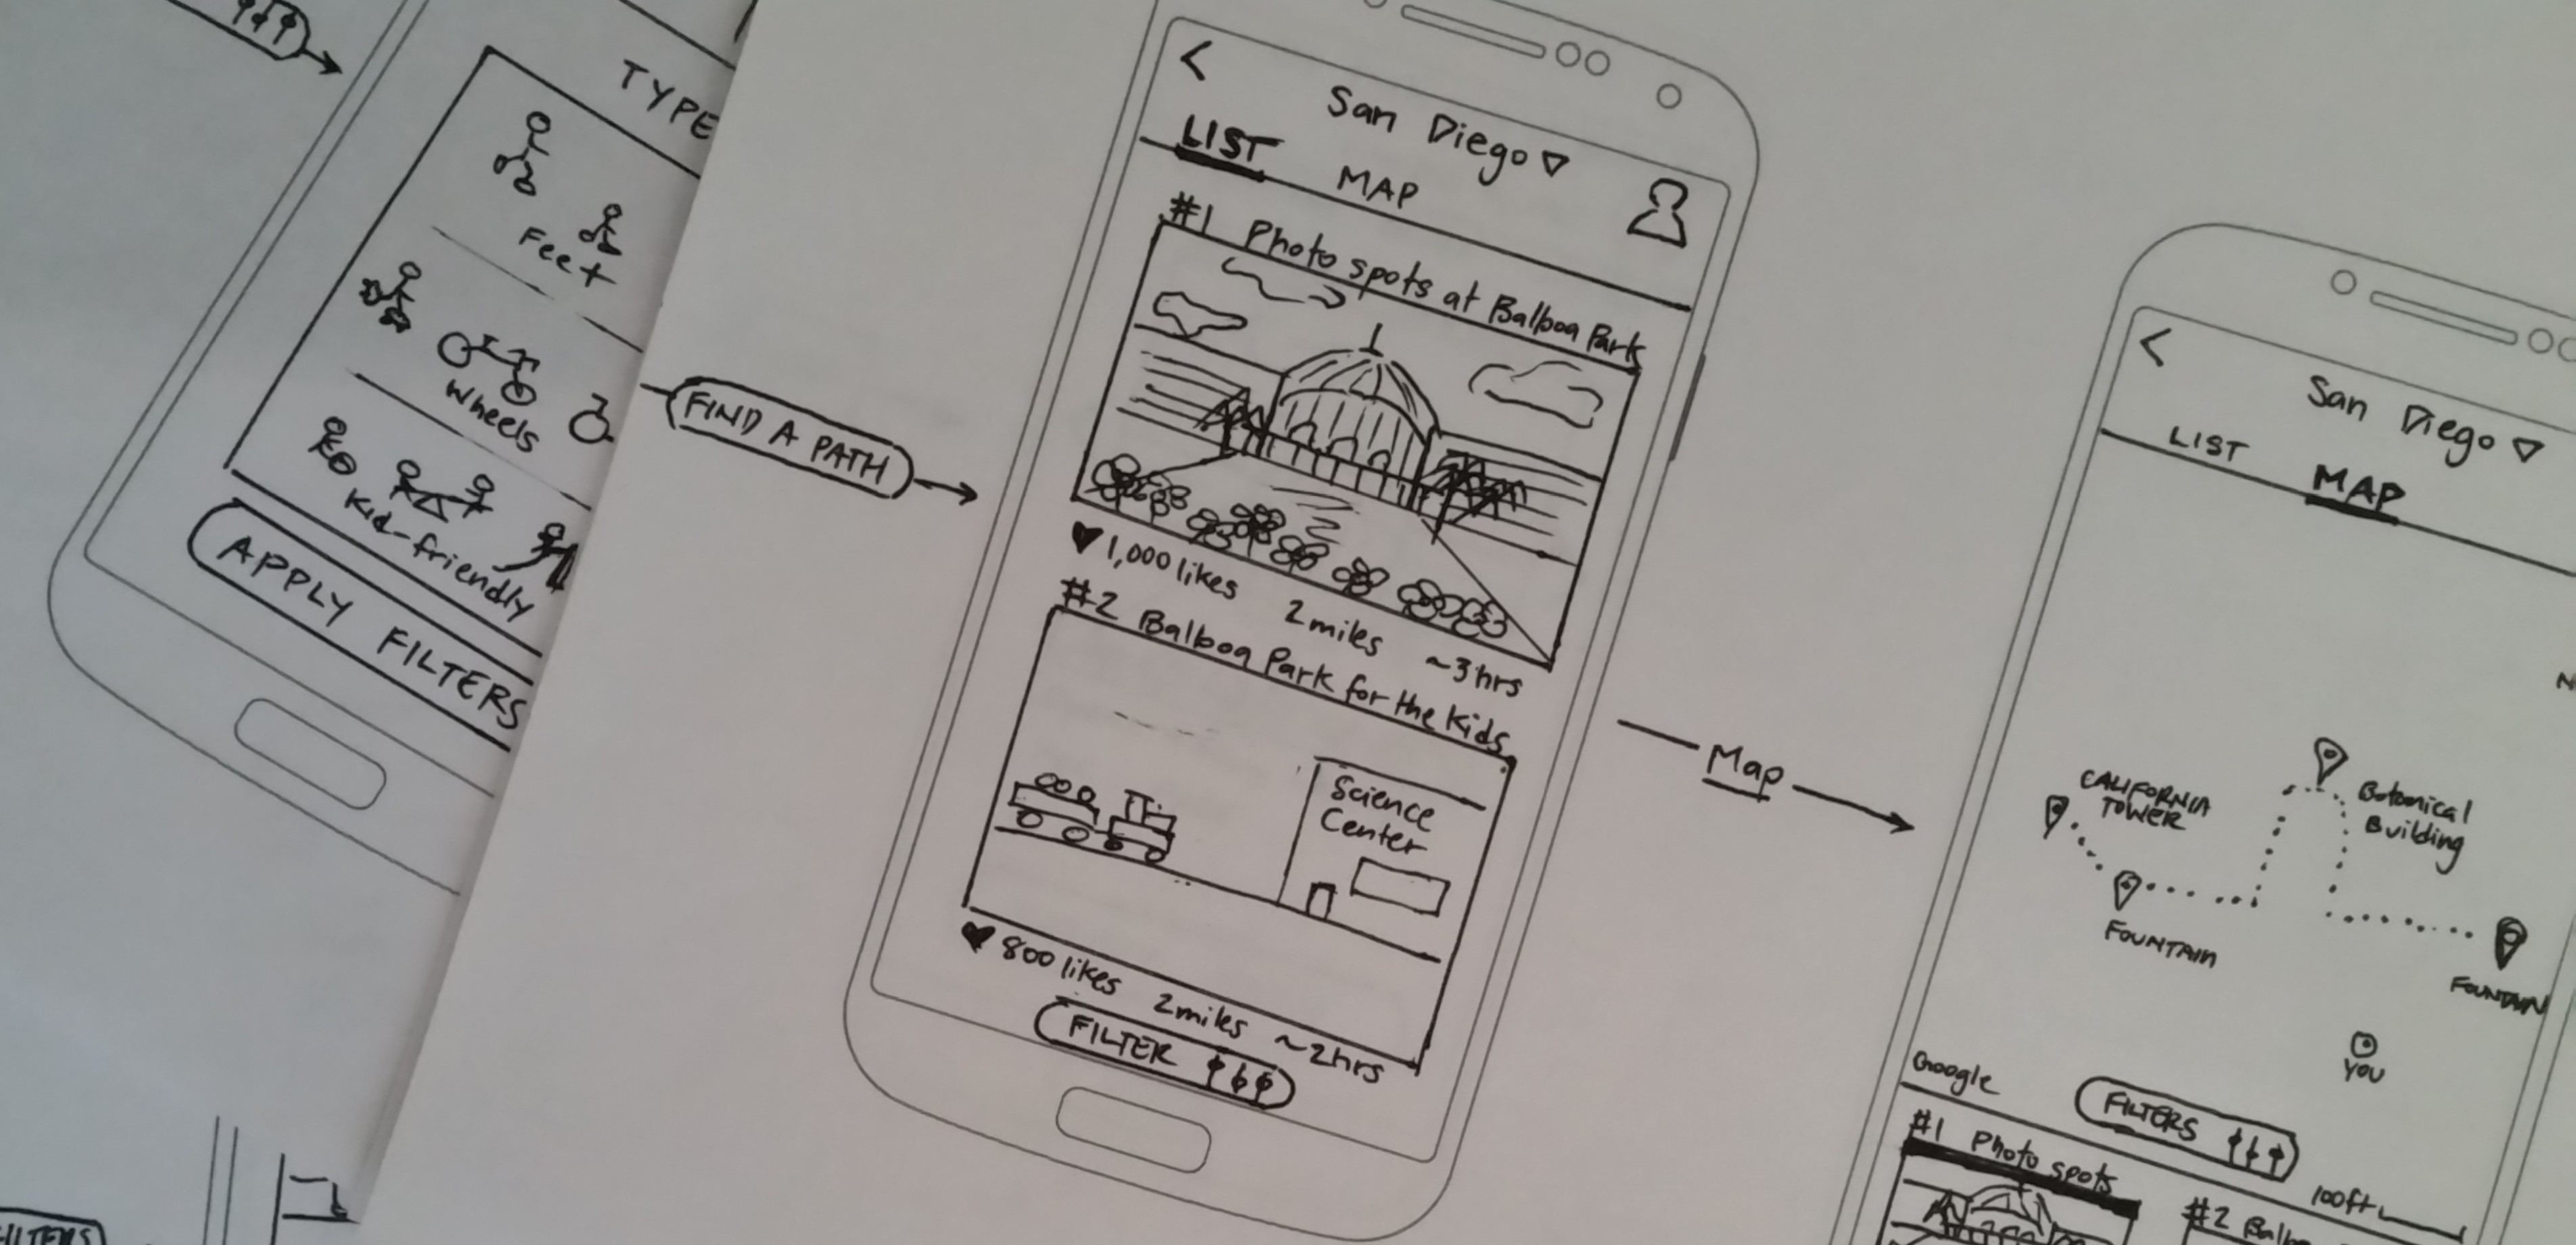 TYPE
Feet
Wheels
Kid-friendly
APPLY FILTERS
FIND A PATH
<
San Diego
LIST MAP
#1 Photo spots at Balboa Park
1,000 likes 2 miles ~3 hrs
#2 Balboa Park for the Kids
Science
Center
800 likes 2 miles ~2 hrs
FILTER
Map
<
San Diego
LIST MAP
CALIFORNIA
TOWER
Botanical
Building
FOUNTAIN
FOUNTAIN
YOU
Google
FILTERS
100ft
#1 Photo spots
#2